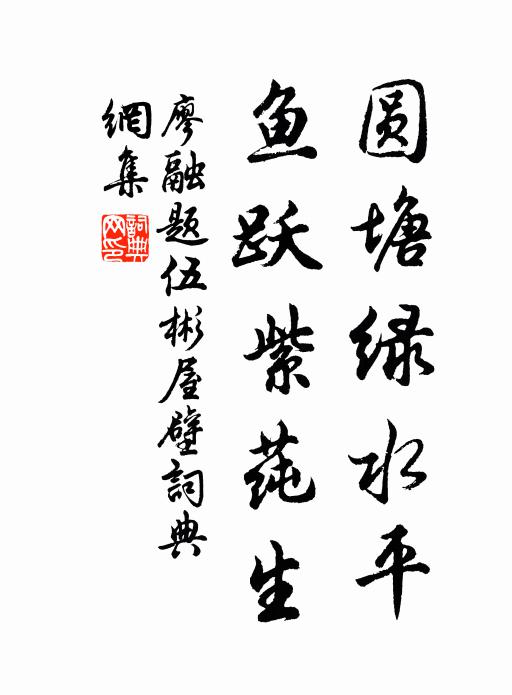 圆塘绿水平
鱼跃紫莼生
廖融题伍彬屋壁詞典
網集
詞典网印